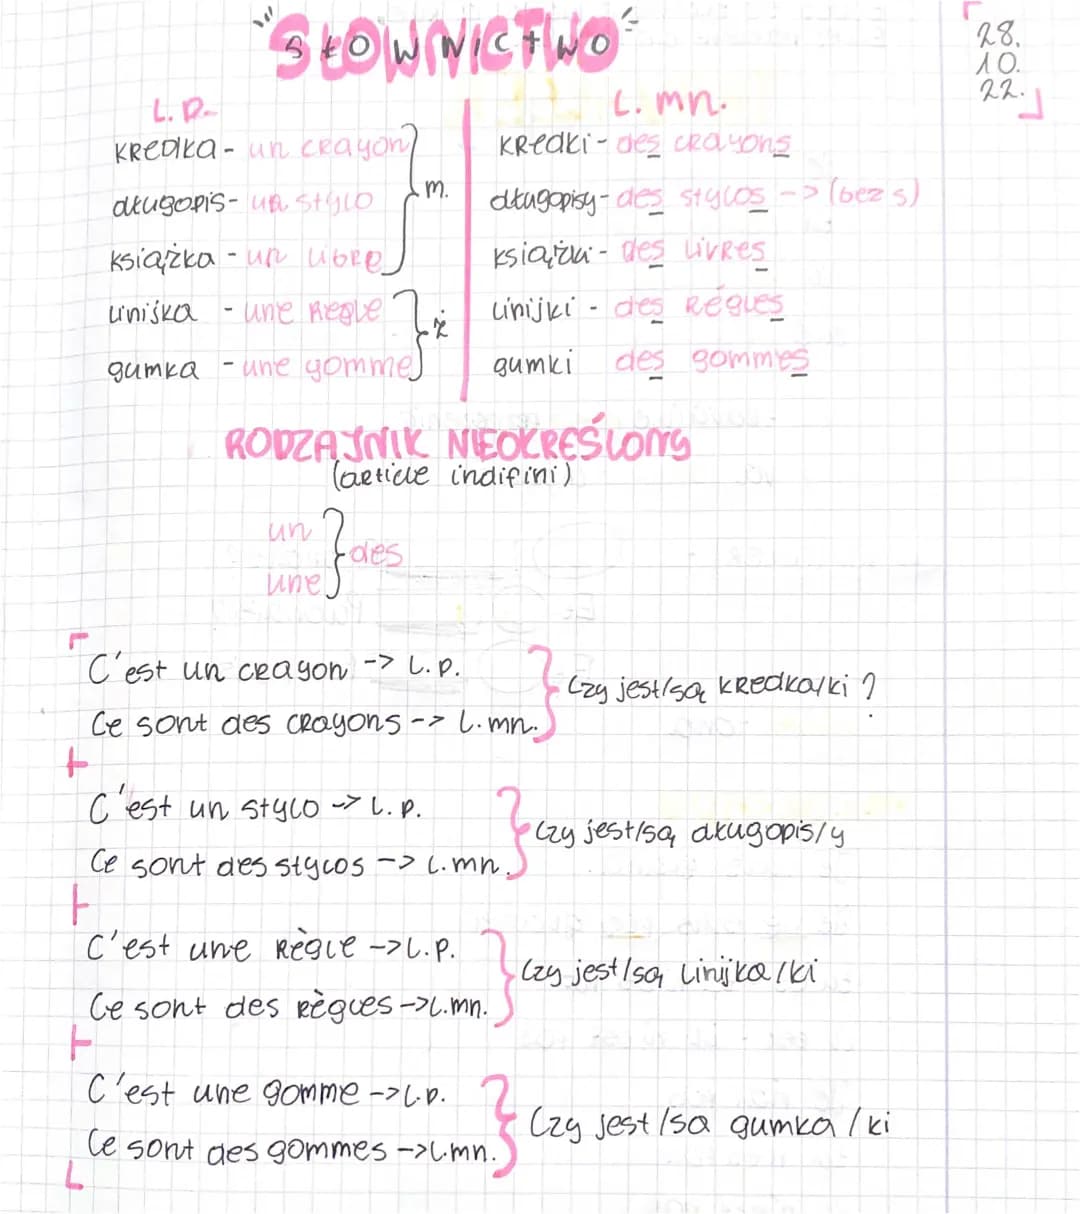 SŁOWNICTWO
28.
10.
22.
L. P.
L. mn.
kredka - un crayon
kredki - des crayons
m.
długopis - un stylo
długopisy - des stylos -> (bez s)
książka - un libre
książki - des livres
linijka - une regle
linijki - des régles
ż
gumka - une gomme
gumki des gommes
RODZAJNIK NIEOKREŚLONY
(article indifini)
un
des
une
C'est un crayon -> L.P.
Czy jest/są kredka/ki ?
Ce sont des crayons -> L.mn.
C'est un stylo -> L.P.
Czy jest/są długopis/y
Ce sont des stylos -> L.mn.
C'est une règle -> L.P.
Czy jest/są linijka/ki
Ce sont des règles -> L.mn.
C'est une gomme -> L.P.
Czy jest/są gumka/ki
Ce sont des gommes -> L.mn.